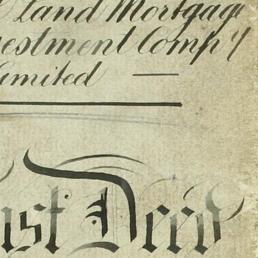 Land Mortgage
estment Comp'y
Limited
ust Deed